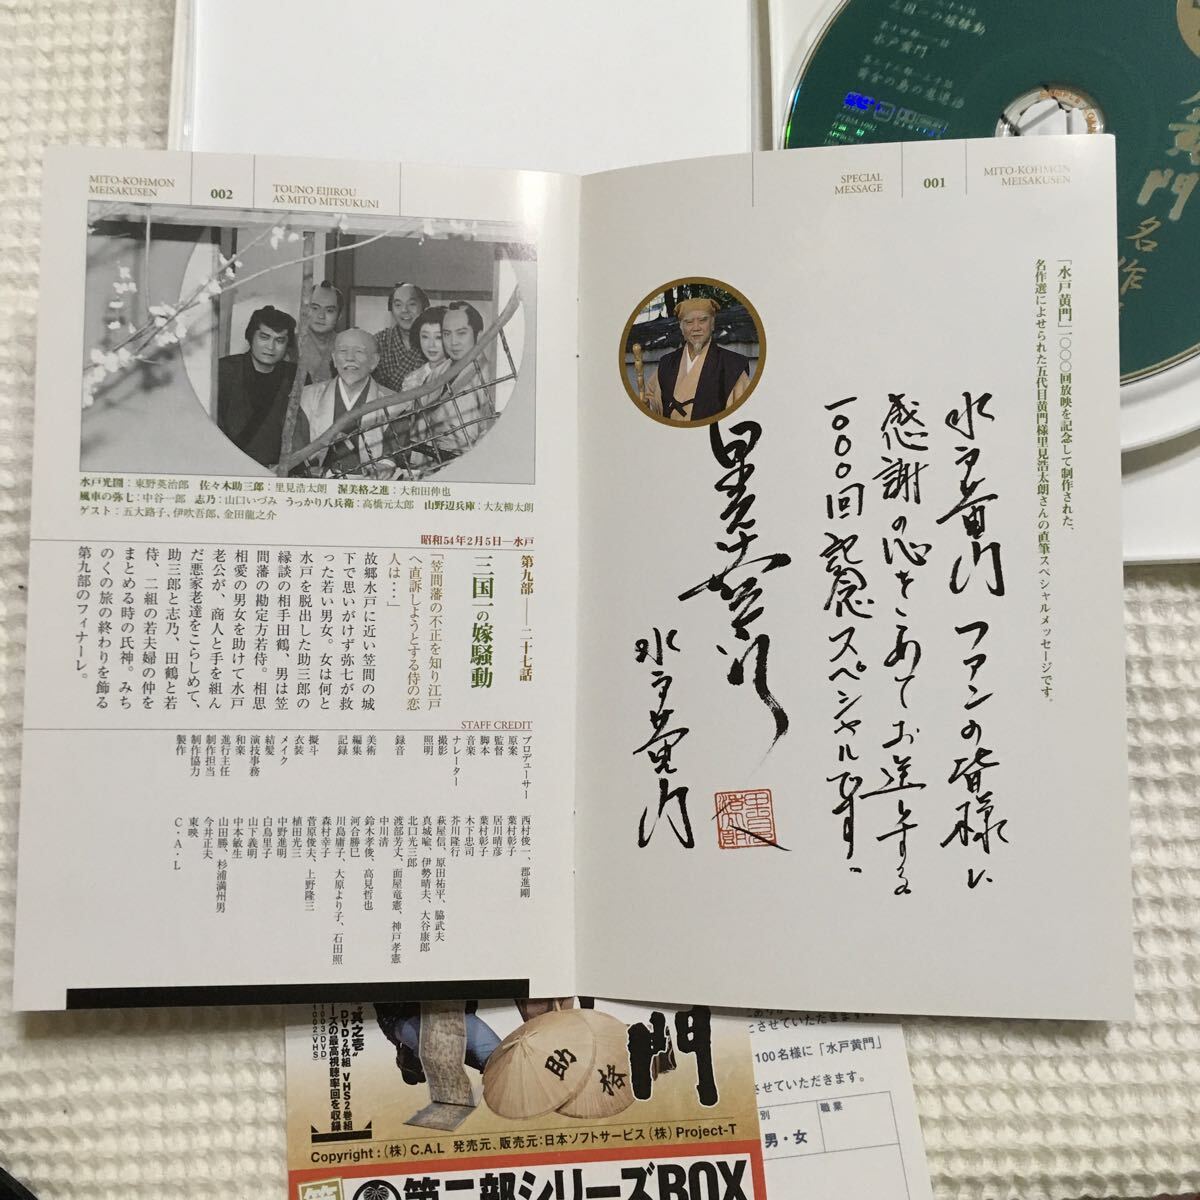 三国一の嫁騒動
水戸黄門
黄金の島の鬼退治
MITO-KOHMON
MEISAKUSEN
002
TOUNO EIJIROU
AS MITO MITSUKUNI
水戸光圀：東野英治郎 佐々木助三郎：里見浩太朗 渥美格之進：大和田伸也
風車の弥七：中谷一郎 志乃：山口いづみ うっかり八兵衛：高橋元太郎 山野辺兵庫：大友柳太朗
ゲスト：五大路子、伊吹吾郎、金田龍之介
昭和54年2月5日―水戸
第九部――二十七話
三国一の嫁騒動
「笠間藩の不正を知り江戸
へ直訴しようとする侍の恋
人は・・・」
故郷水戸に近い笠間の城
下で思いがけず弥七が救
った若い男女。女は何と
水戸を脱出した助三郎の
縁談の相手田鶴、男は笠
間藩の勘定方若侍。相思
相愛の男女を助けて水戸
老公が、商人と手を組ん
だ悪家老達をこらしめて、
助三郎と志乃、田鶴と若
侍、二組の若夫婦の仲を
まとめる時の氏神。みち
のくの旅の終わりを飾る
第九部のフィナーレ。
STAFF CREDIT
プロデューサー 西村俊一、郡進剛
原案 葉村彰子
監督 居川晴彦
脚本 葉村彰子
音楽 木下忠司
ナレーター 芥川隆行
撮影 萩屋信、原田祐平、脇武夫
照明 真城喩、伊勢晴夫、大谷康郎
北口光三郎
録音 中川清
渡部芳丈、面屋竜憲、神戸孝憲
美術 鈴木孝俊、高見哲也
編集 河合勝巳
記録 川島庸子、大原より子、石田照
森村幸子
擬斗 菅原俊夫、上野隆三
衣装 植田光三
メイク 中野進明
結髪 白鳥里子
演技事務 山下義明
和楽 中本敏生
進行主任 山田勝、杉浦満州男
制作担当 今井正夫
制作協力 東映
製作 C・A・L
SPECIAL
MESSAGE
001
MITO-KOHMON
MEISAKUSEN
「水戸黄門」一〇〇〇回放映を記念して制作された、
名作選によせられた五代目黄門様里見浩太朗さんの直筆スペシャルメッセージです。
水戸黄門ファンの皆様に
感謝の心をこめてお送りする
一〇〇〇回記念スペシャルです。
里見浩太朗
水戸黄門
其之壱
DVD2枚組 VHS2巻組
ーズの最高視聴率回を収録
助
格
門
Copyright：（株）C.A.L 発売元、販売元：日本ソフトサービス（株）Project-T
第二部シリーズBOX
こさせていただきます。
100名様に「水戸黄門」
させていただきます。
別
職業
男・女